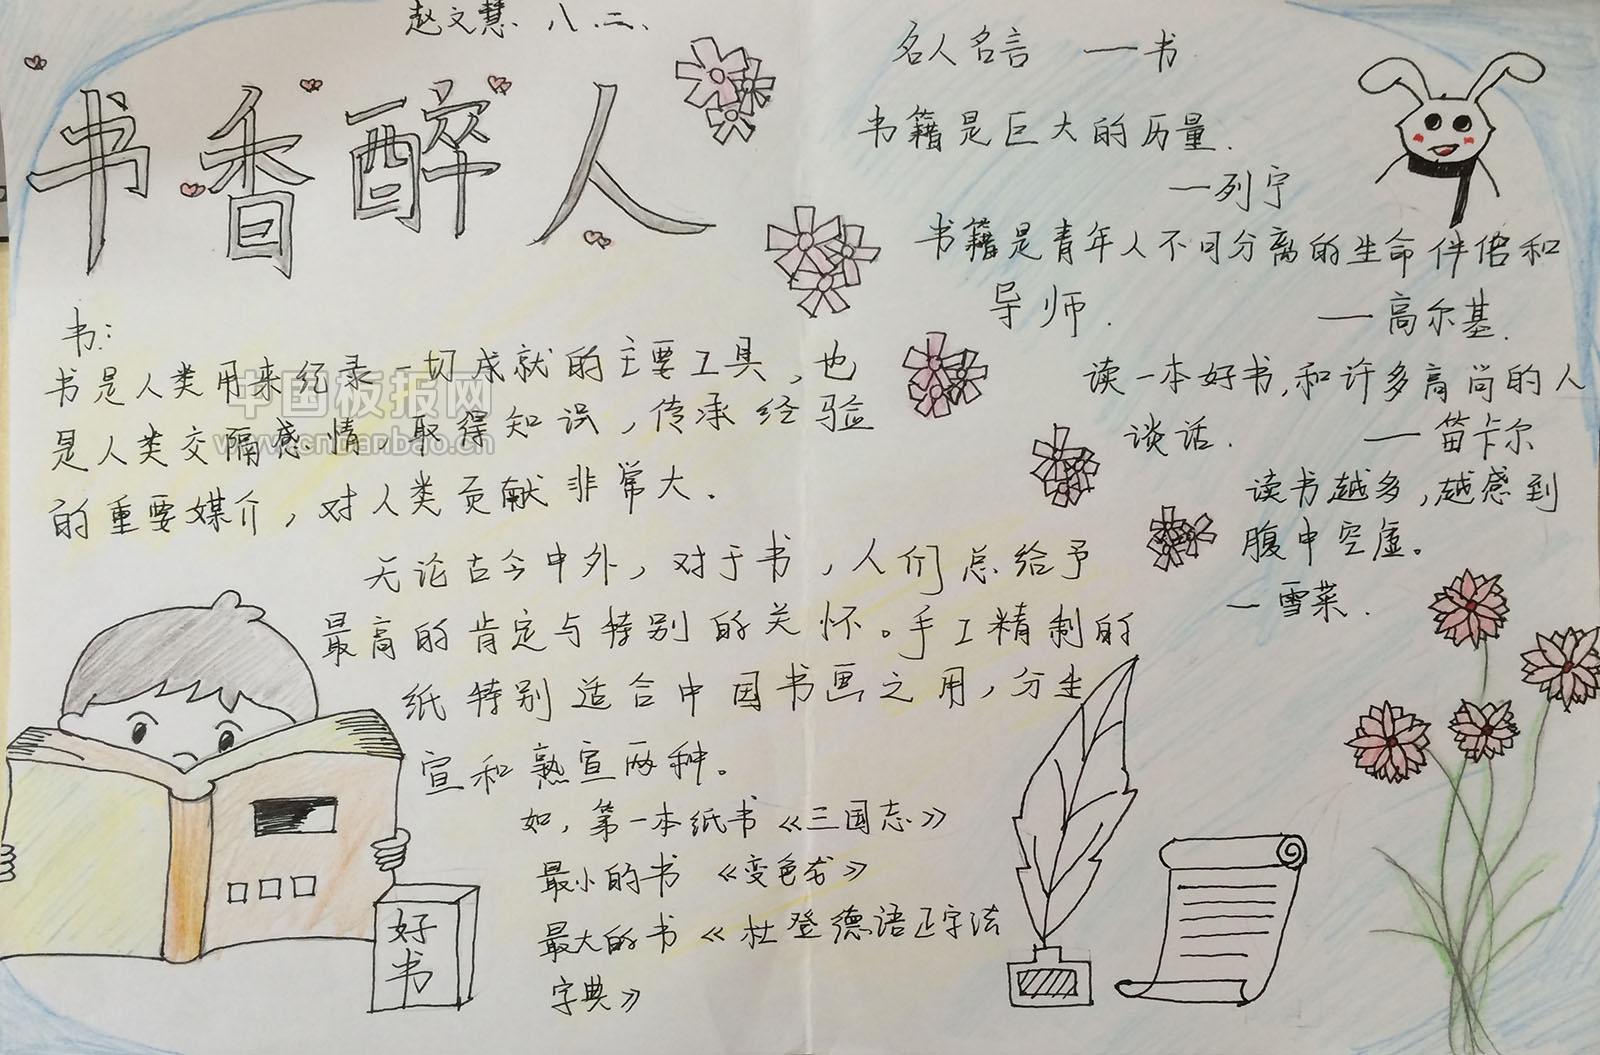 赵文慧 八.二.
书香醉人
书:
书是人类用来纪录一切成就的主要工具，也
是人类交隔感情，取得知识，传承经验
的重要媒介，对人类贡献非常大.
无论古今中外，对于书，人们总给予
最高的肯定与特别的关怀。手工精制的
纸特别适合中国书画之用，分生
宣和熟宣两种。
如，第一本纸书《三国志》
最小的书《变色龙》
最大的书《杜登德语正字法
字典》
好
书
名人名言 —书
书籍是巨大的历量.
—列宁
书籍是青年人不可分离的生命伴侣和
导师.
—高尔基.
读一本好书,和许多高尚的人
谈话.
—笛卡尔
读书越多,越感到
腹中空虚。
—雪莱.
中国板报网
www.cnbanbao.cn